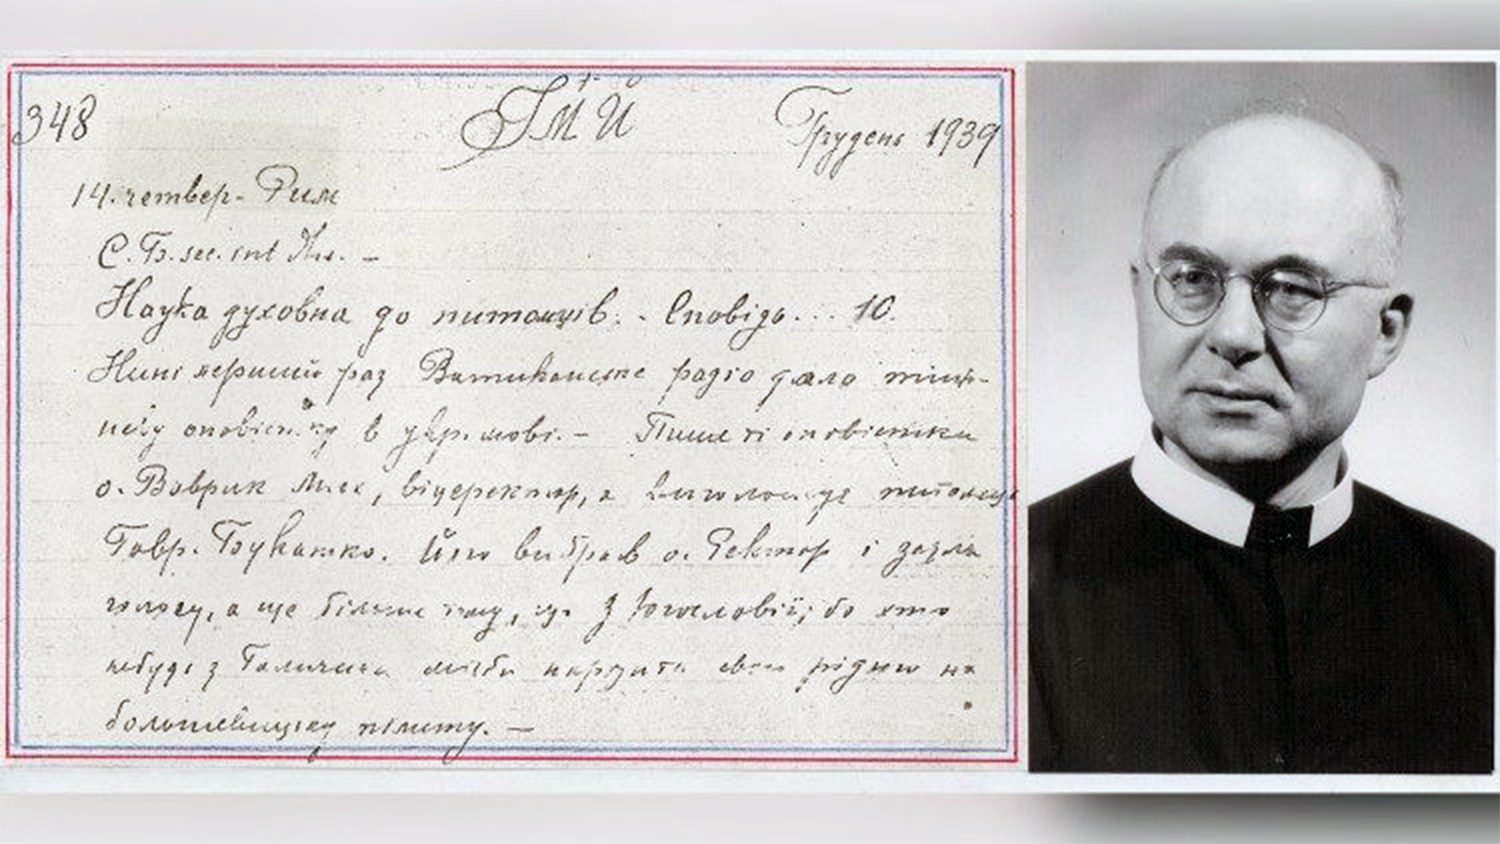 348 ІМЙ Грудень 1939
14. четвер - Рим
С. Б. sec. int
Наука духовна до питомців. - Сповідь... 10.
Нині перший раз Ватиканське радіо дало
оповістку в укр. мові. - Пише ті оповістки
о. Ваврик Мих, віцеректор, а виголошує питомець
Гавр. Букатко. Його вибрав о. Ректор і задля
голосу, а ще більше тому, що з Югославії; бо хто
небудь з Галичини міг би наразити свою рідню на
большевицьку пімсту. -